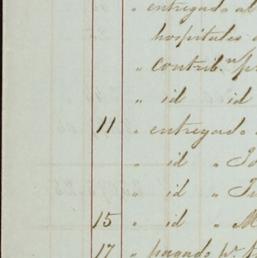 " entregado al
hospitales
" contribn. p
" id id
11 " entregado
" id " Jo
" id "
15 " id " M
17 " pagado pr.